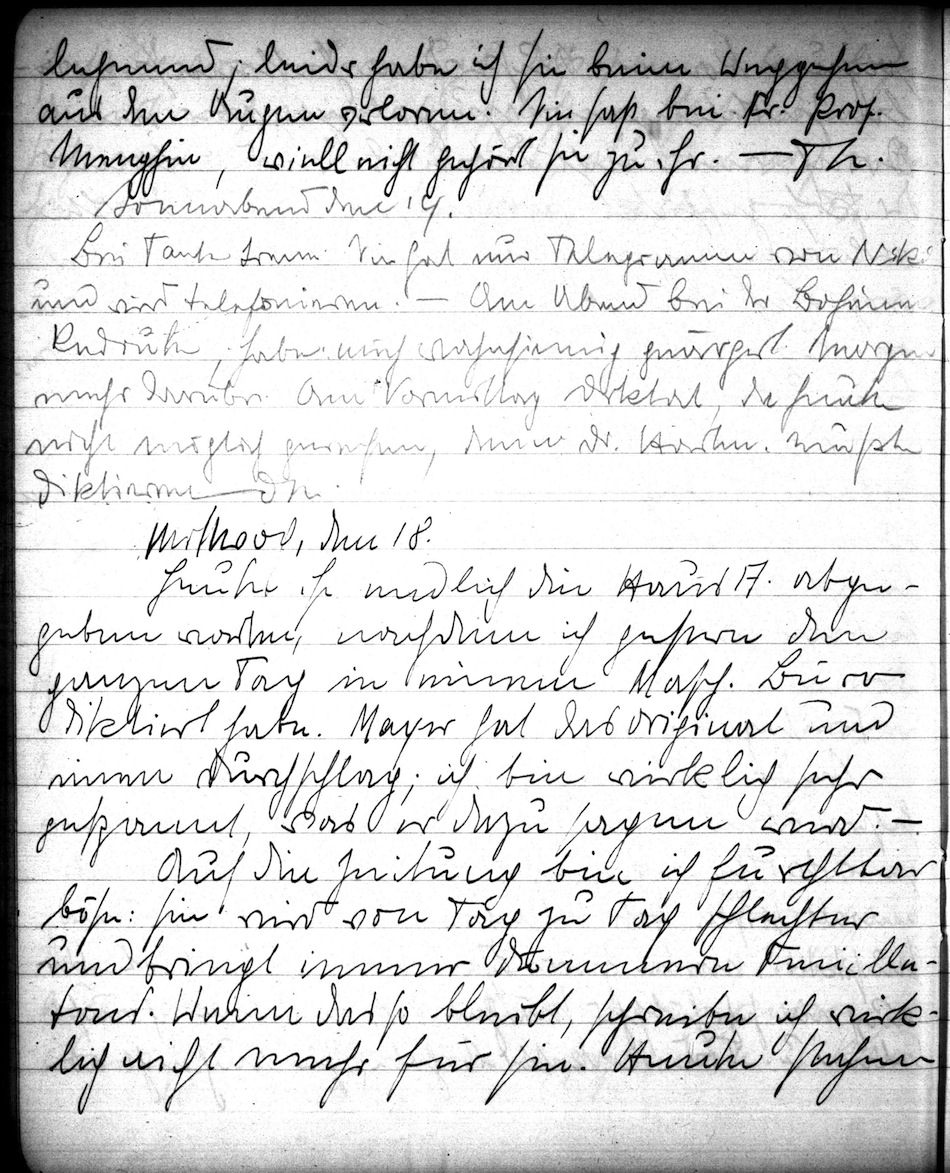 leider habe ich sie beim Weggehen
aus den Augen verloren. Sie saß bei Fr. Prof.
Menghin, vielleicht gehört sie zu ihr. —
Sonnabend den 14.
Bei Tante Sie hat nur Telegramm von
und wird telefonieren. — Am Abend bei der
habe mich wahnsinnig geärgert. Morgen
mehr darüber. Am Vormittag Diktat, da heute
nicht möglich gewesen, denn Dr. mußte
diktieren
Mittwoch, den 18.
Heute ist endlich die Haus A. abge-
geben worden, nachdem ich gestern den
ganzen Tag in einem Masch. Büro
diktiert habe. Mayer hat das Original und
einen Durchschlag; ich bin wirklich sehr
gespannt, was er dazu sagen wird. —
Auf die Zeitung bin ich furchtbar
böse: sie wird von Tag zu Tag schlechter
und bringt immer dümmere Feuille-
tons. Wenn das so bleibt, schreibe ich wirk-
lich nicht mehr für sie. Heute stehen